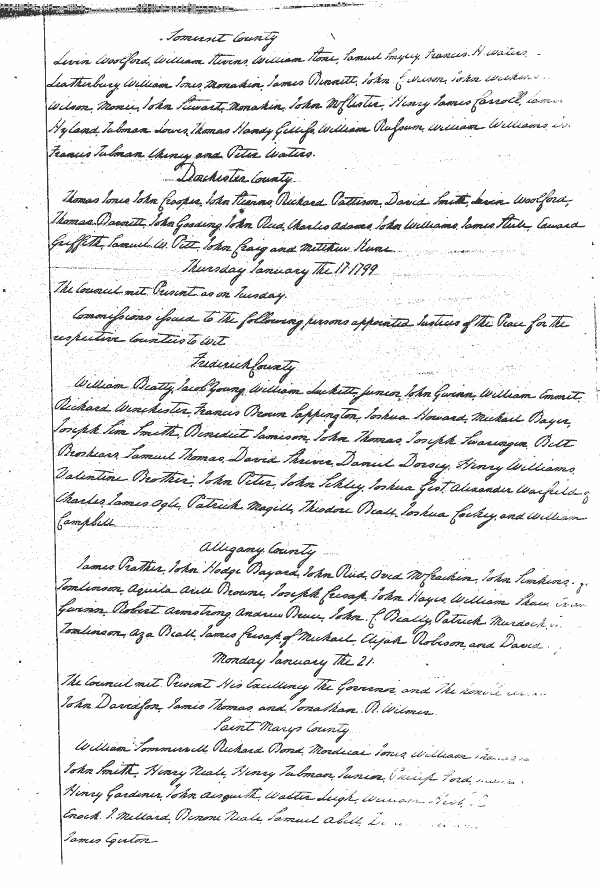 Somerset County
Levin Woolford, William Stevens, William Stone, Samuel Francis H Waters,
Leatherbury William Jones, Monakin, James Bennett, John John
Wilson, Monie, John Stewart, Monakin, John McClister, Henry James Carroll,
Hyland, Tubman Lowes, Thomas Handy Gilliss, William William Williams,
Francis Tubman Cheney and Peter Waters.
Dorchester County
Thomas Jones John Cropper, John Stevens, Richard Pattison, David Smith, Levin Woolford,
Thomas Barnett, John Gooding John Reed, Charles Adams, John Williams, James Steele, Edward
Griffith, Samuel W. Pitt, John Craig and Matthew Keene
Thursday January the 17 1799
The Council met. Present as on Tuesday.
Commissions issued to the following persons appointed Justices of the Peace for the
respective Counties to Wit
Frederick County
William Beatty, Jacob Young William Luckett junior, John Gwinn, William Emmit,
Richard Winchester, Francis Brown Sappington, Joshua Howard, Michael Bayer,
Joseph Sim Smith, Benedict Jamison, John Thomas, Joseph Swearingen Belt
Brashears Samuel Thomas, David Shriver Daniel Dorsey, Henry Williams,
Valentine Brother, John Peter, John Joshua Gist, Alexander Warfield of
Charles, James Ogle, Patrick Magill, Theodore Beall, Joshua Cockey, and William
Campbell
Allegany County
James Prather, John Hodge Bayard, John Reid, Ovid McCrackin, John Simkins,
Tomlinson, Aquila Arell Browne, Joseph Cresap, John Hayes, William Shaw,
Gwinn, Robert Armstrong Andrew Bruce, John C Beall, Patrick Murdock,
Tomlinson, Aza Beall, James Cresap of Michael, Elijah Robison, and David
Monday January the 21.
The Council met. Present His Excellency The Governor and The
John Davidson, James Thomas, and Jonathan R. Wilmer
Saint Marys County
William Sommervill Richard Bond, Mordicai Jones, William
John Smith, Henry Neale, Henry Tubman, Junior, Philip Ford,
Henry Gardiner, John Aisquith, Walter Leigh, William
Enoch J. Millard, Benoni Neale Samuel Abell,
James Egerton